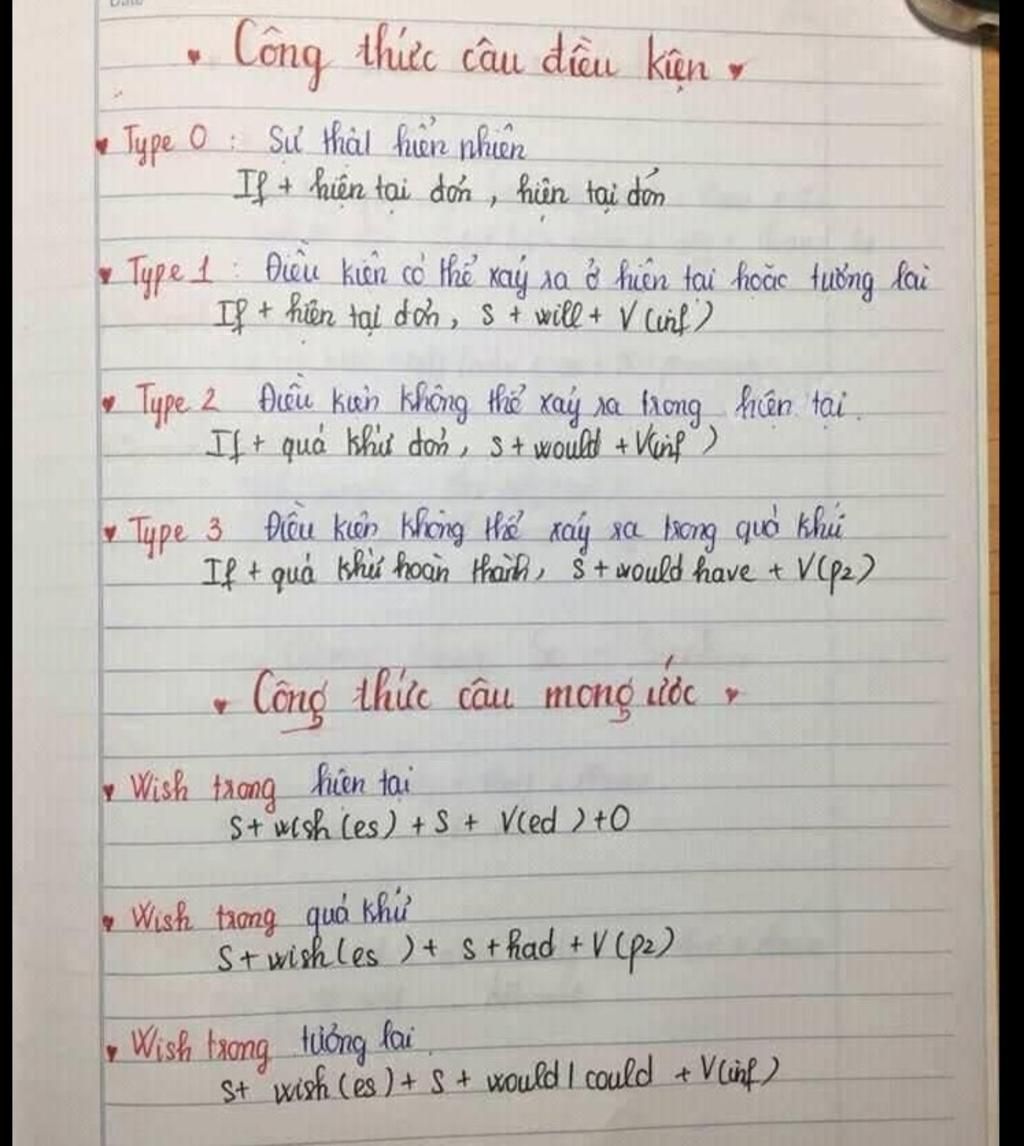 Date
Công thức câu điều kiện
Type 0 : Sự thật hiển nhiên
If + hiện tại đơn, hiện tại đơn
Type 1 : Điều kiện có thể xảy ra ở hiện tại hoặc tương lai
If + hiện tại đơn, S + will + V (inf)
Type 2 Điều kiện không thể xảy ra trong hiện tại.
If + quá khứ đơn, S + would + V(inf)
Type 3 Điều kiện không thể xảy ra trong quá khứ
If + quá khứ hoàn thành, S + would have + V(p2)
Công thức câu mong ước
Wish trong hiện tại
S + wish (es) + S + V(ed) + O
Wish trong quá khứ
S + wish (es) + S + had + V (p2)
Wish trong tương lai
S + wish (es) + S + would / could + V(inf)